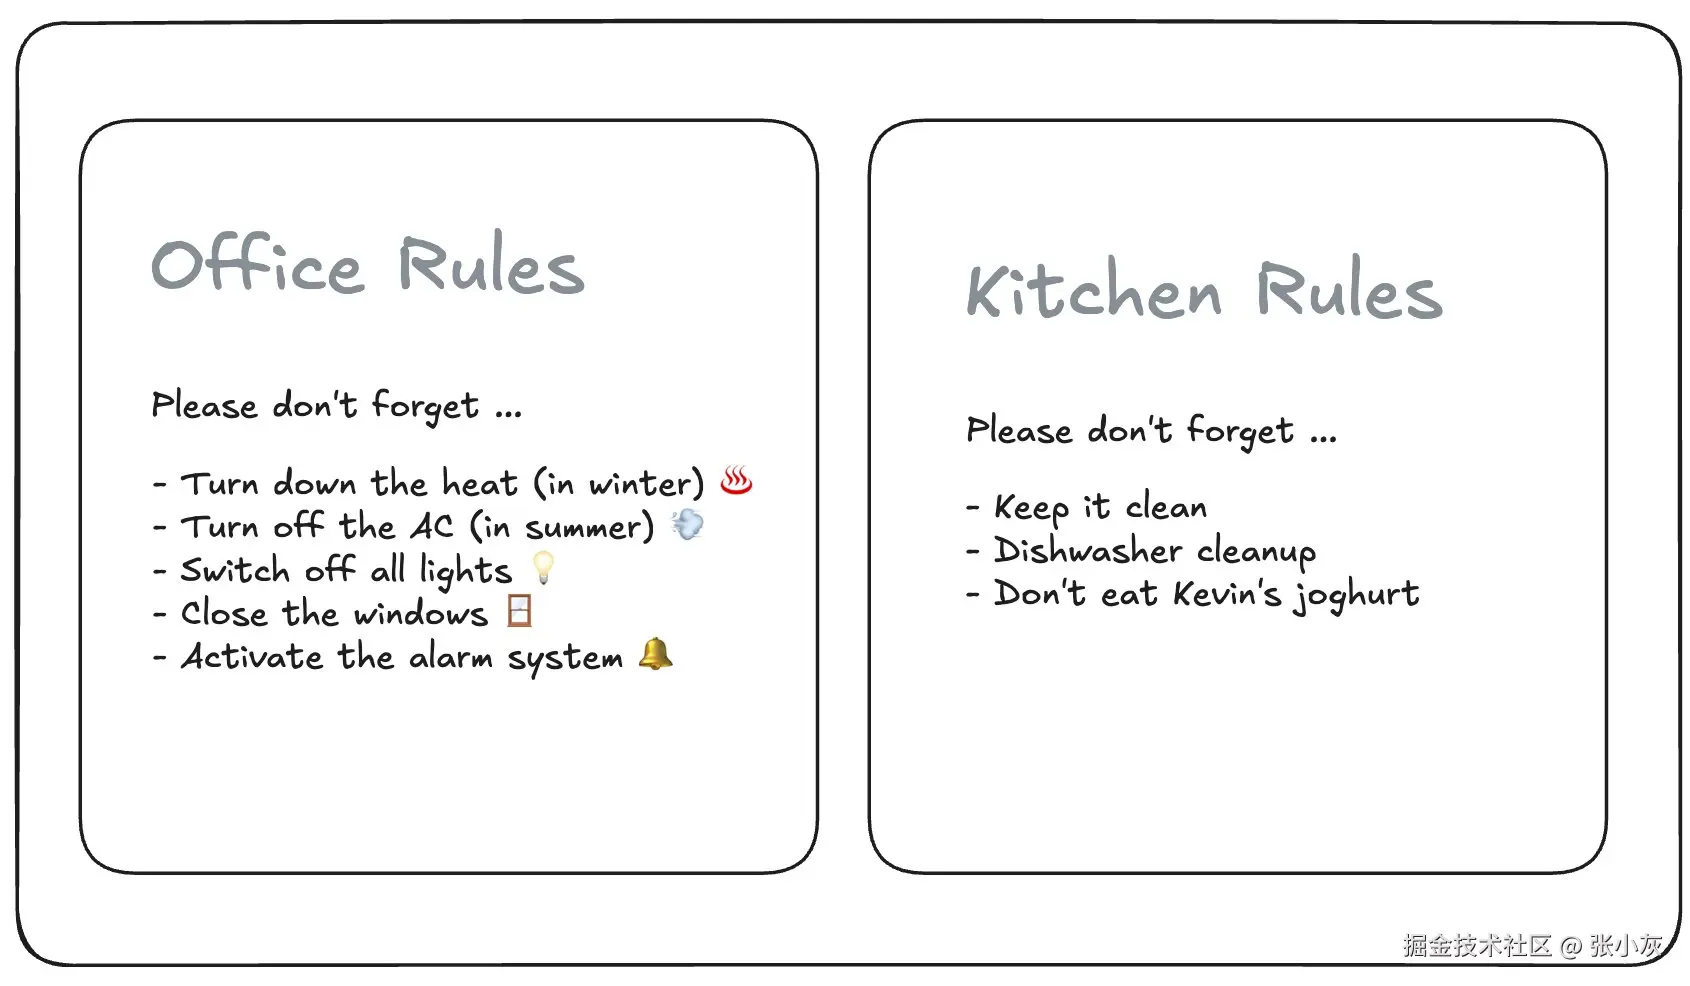 Office Rules
Please don't forget ...
- Turn down the heat (in winter) ♨️
- Turn off the AC (in summer) 💨
- Switch off all lights 💡
- Close the windows 🪟
- Activate the alarm system 🔔
Kitchen Rules
Please don't forget ...
- Keep it clean
- Dishwasher cleanup
- Don't eat Kevin's joghurt
掘金技术社区 @ 张小灰